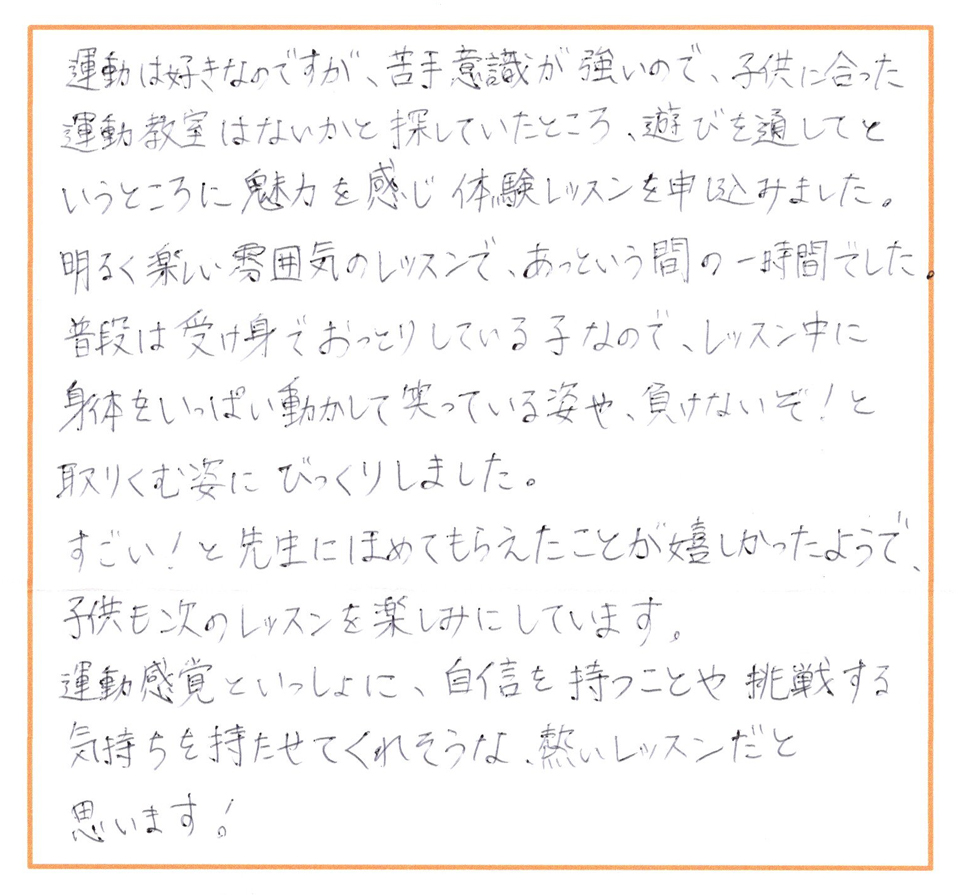 運動は好きなのですが、苦手意識が強いので、子供に合った
運動教室はないかと探していたところ、遊びを通してと
いうところに魅力を感じ体験レッスンを申し込みました。
明るく楽しい雰囲気のレッスンで、あっという間の一時間でした。
普段は受け身でおっとりしている子なので、レッスン中に
身体をいっぱい動かして笑っている姿や、負けないぞ!と
取りくむ姿にびっくりしました。
すごい!と先生にほめてもらえたことが嬉しかったようで、
子供も次のレッスンを楽しみにしています。
運動感覚といっしょに、自信を持つことや挑戦する
気持ちを持たせてくれそうな、熱いレッスンだと
思います!